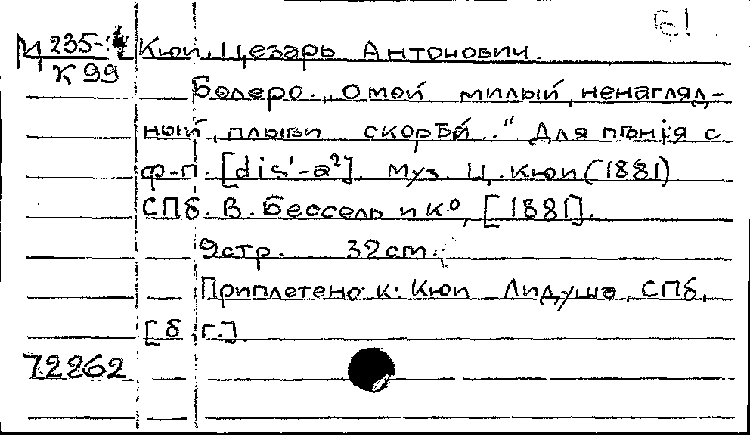 Е1
М 235-4 Кюи, Цезарь Антонович.
К 99
Болеро. „О мой милый, ненагляд-
ный, плыви скорѣй." Для пѣнія с
ф-п. [dis'-a²]. Муз. Ц. Кюи (1881)
СПб. В. Бессель и К⁰, [1881].
9 стр. 32 cm.
Приплетено к: Кюи Лидуша, СПб,
[б.г.].
72262